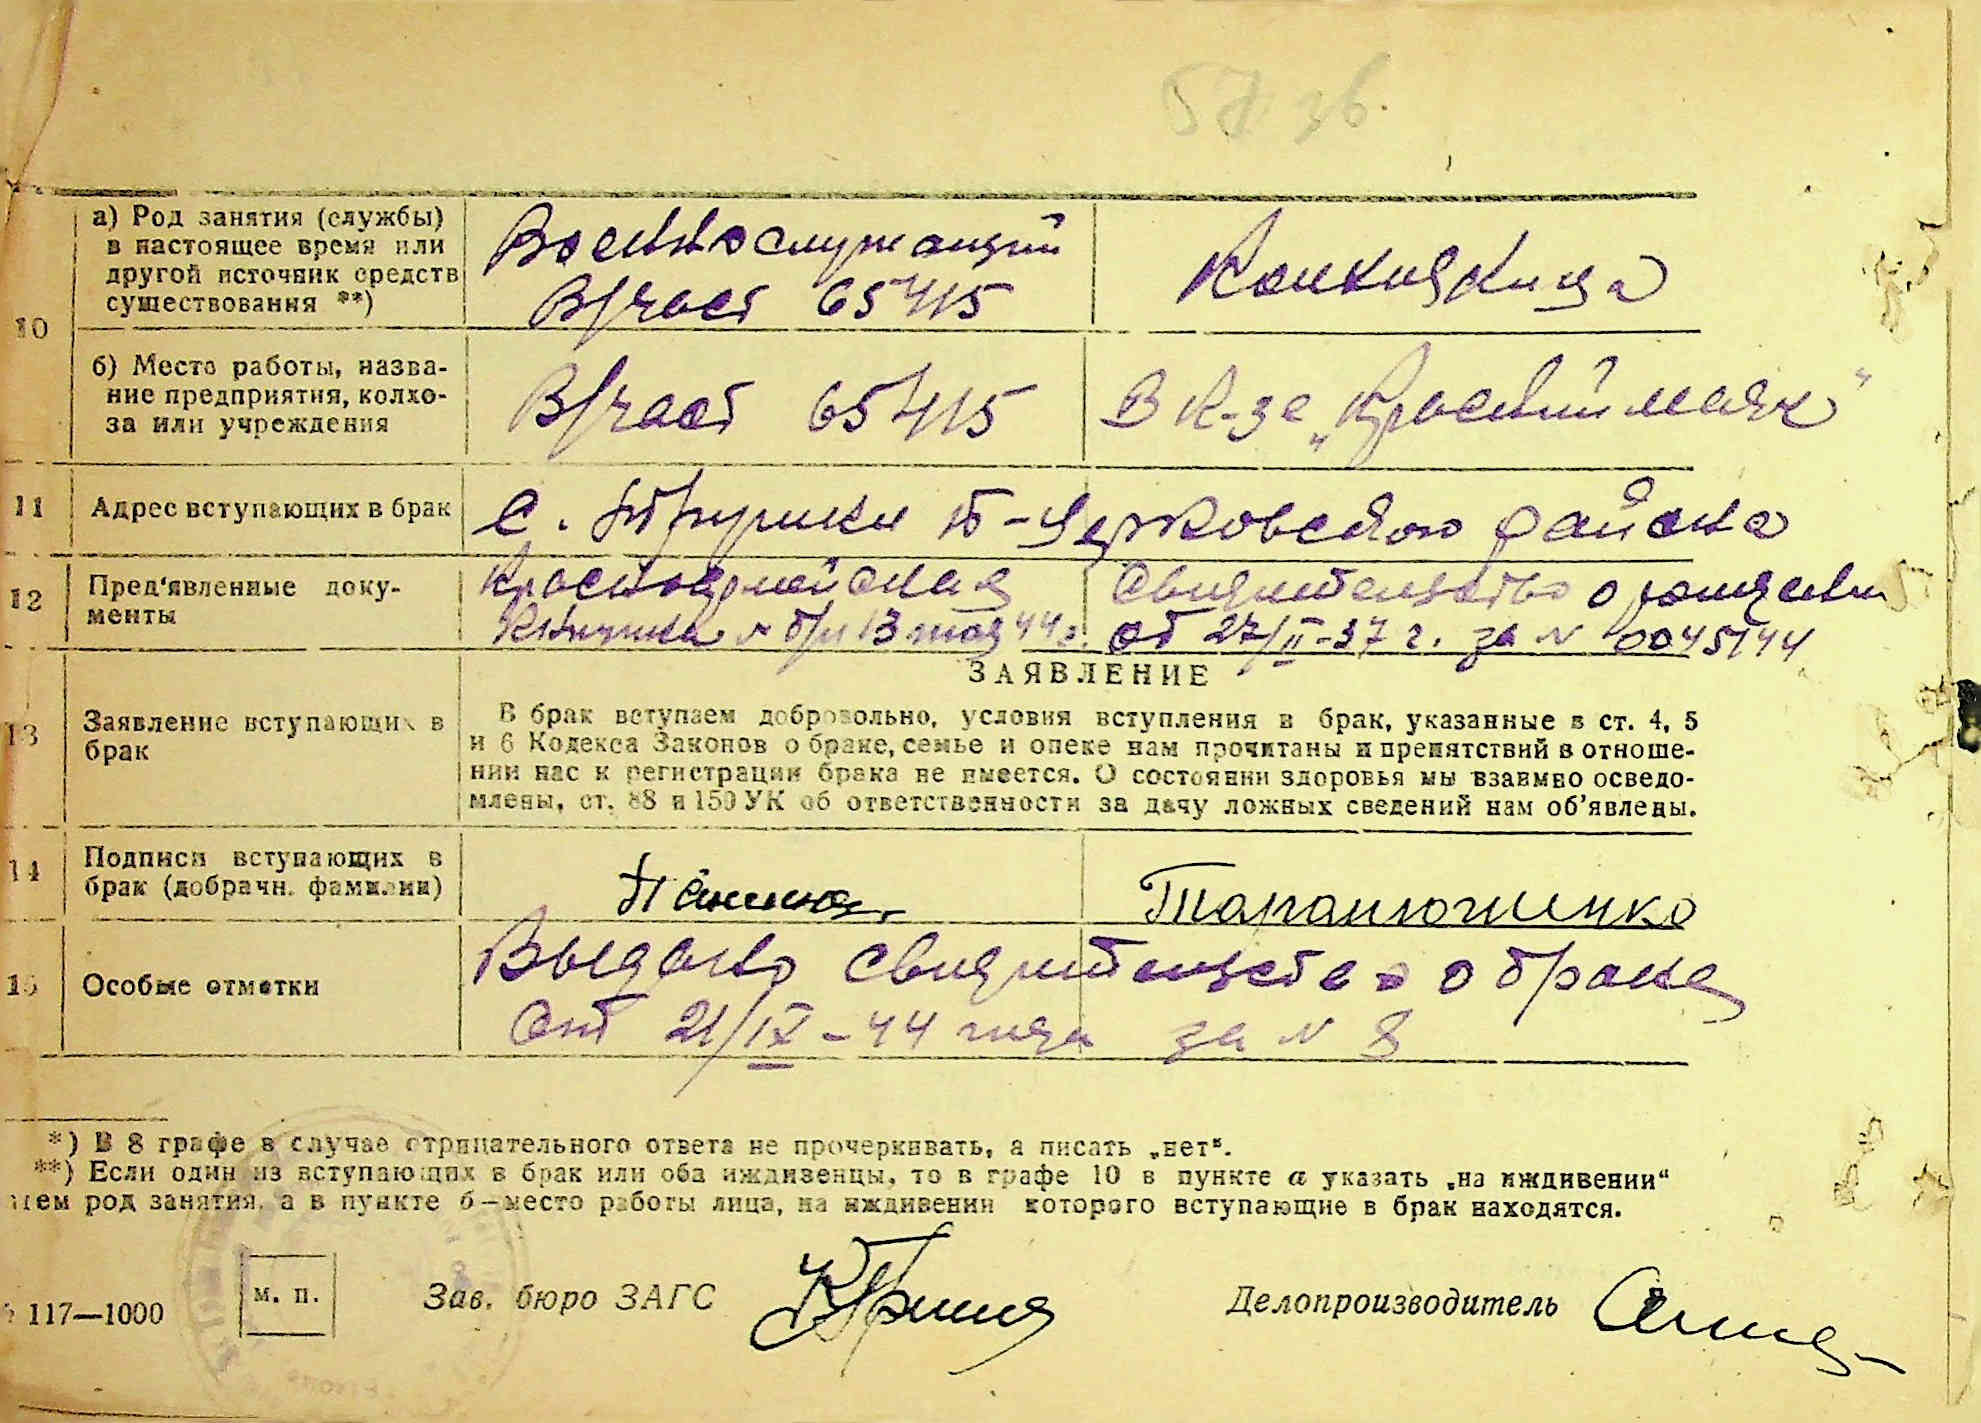 57 зв.
10
а) Род занятия (службы)
в настоящее время или
другой источник средств
существования **)
Военнослужащий
В/част 65415
б) Место работы, назва-
ние предприятия, колхо-
за или учреждения
В/част 65415
В К-зе „Красный маяк"
11
Адрес вступающих в брак
с. Б-Церковского района
12
Пред'явленные доку-
менты
Красноармейская
Книжка № б/н 13 мая 44 г.
Свидетельство о рождении
от 27/II-37 г. за № 0045144
ЗАЯВЛЕНИЕ
13
Заявление вступающих в
брак
В брак вступаем добровольно, условия вступления в брак, указанные в ст. 4, 5
и 6 Кодекса Законов о браке, семье и опеке нам прочитаны и препятствий в отноше-
нии нас к регистрации брака не имеется. О состоянии здоровья мы взаимно осведо-
млены, ст. 88 и 150 УК об ответственности за дачу ложных сведений нам об'явлены.
14
Подписи вступающих в
брак (добрачн. фамилии)
15
Особые отметки
Выдано свидетельство о браке
от 21/IX-44 года за № 8
*) В 8 графе в случае отрицательного ответа не прочеркивать, а писать „нет".
**) Если один из вступающих в брак или оба иждивенцы, то в графе 10 в пункте а указать „на иждивении"
род занятия, а в пункте б—место работы лица, на иждивении которого вступающие в брак находятся.
117—1000
м. п.
Зав. бюро ЗАГС
Делопроизводитель